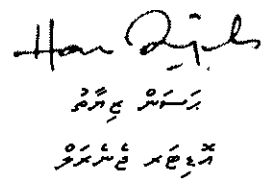 ޙަސަން ޒިޔާތު
އޮޑިޓަރ ޖެނެރަލް